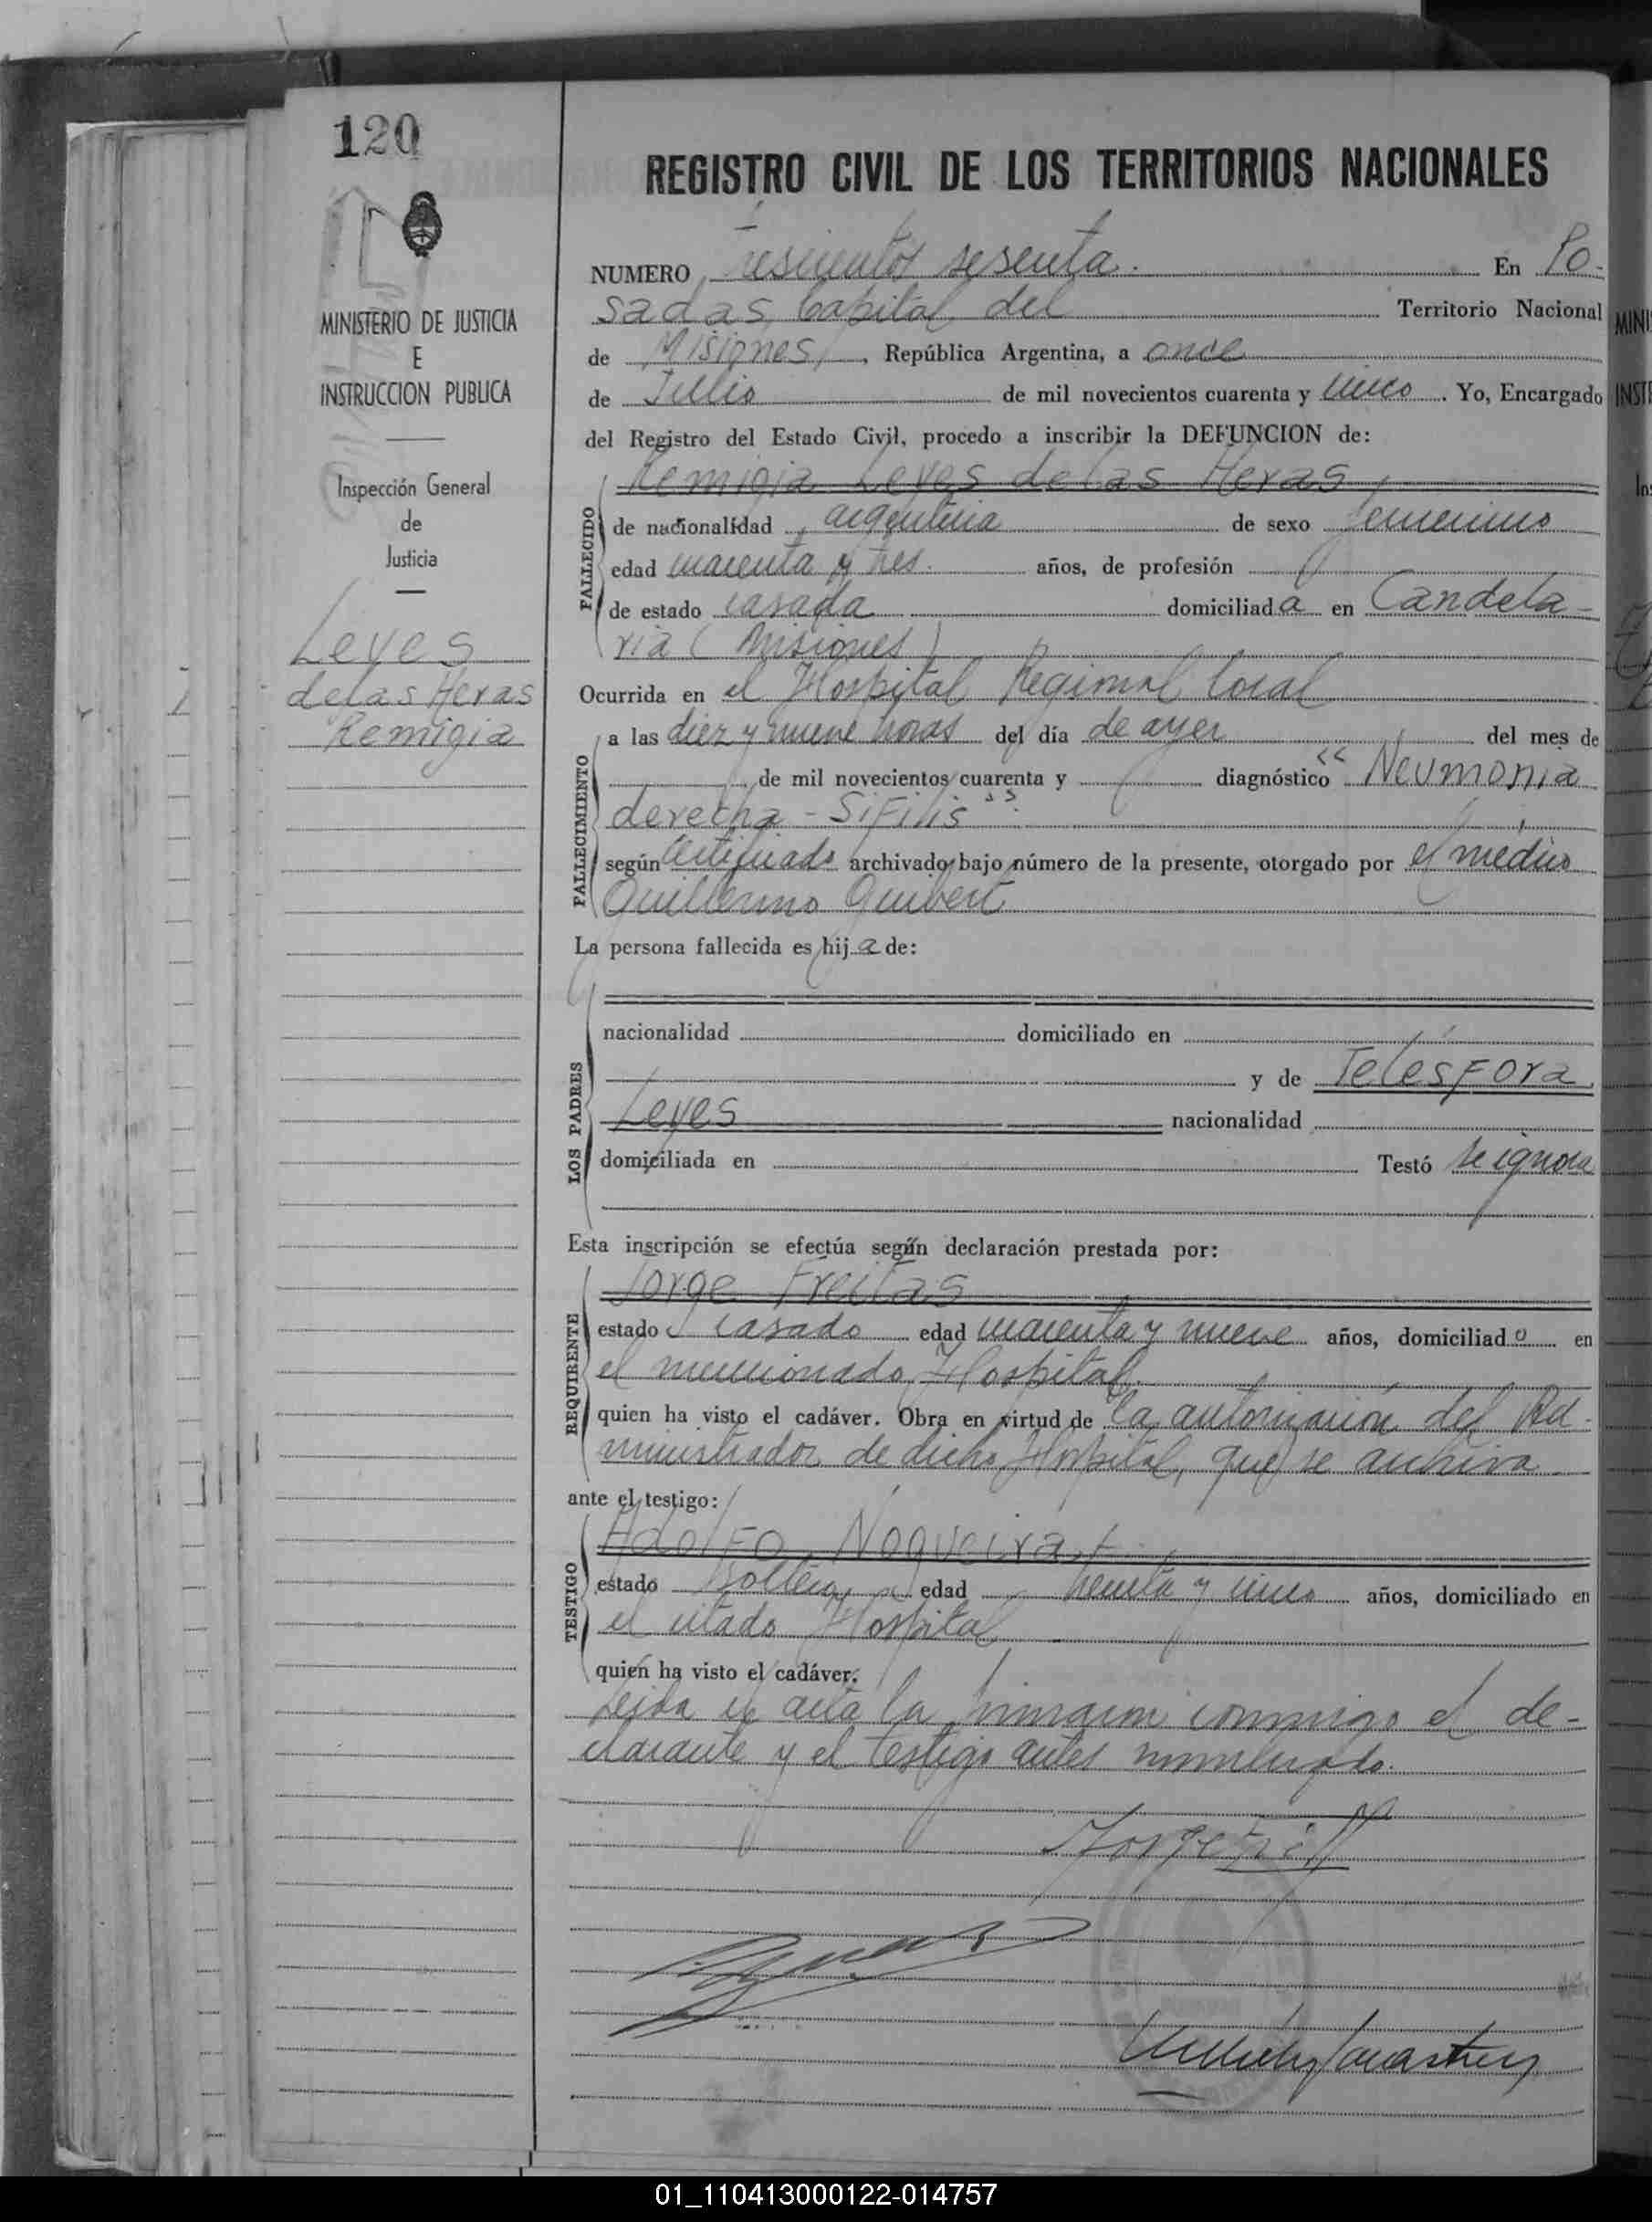 120
MINISTERIO DE JUSTICIA
E
INSTRUCCION PUBLICA
Inspección General
de
Justicia
Leyes
de las Heras
Remigia
REGISTRO CIVIL DE LOS TERRITORIOS NACIONALES
NUMERO Trescientos sesenta. En Po-
sadas, Capital del Territorio Nacional
de Misiones, República Argentina, a once
de Julio de mil novecientos cuarenta y cinco. Yo, Encargado
del Registro del Estado Civil, procedo a inscribir la DEFUNCION de:
FALLECIDO
Remigia Leyes de las Heras,
de nacionalidad argentina de sexo femenino
edad cuarenta y tres. años, de profesión
de estado casada domiciliada en Candela-
ria (Misiones)
Ocurrida en el Hospital Regional local
FALLECIMIENTO
a las diez y nueve horas del día de ayer del mes de
de mil novecientos cuarenta y diagnóstico "Neumonia
derecha - Sifilis".
según certificado archivado bajo número de la presente, otorgado por el médico
Guillermo Guibert
La persona fallecida es hija de:
LOS PADRES
nacionalidad domiciliado en
y de Telésfora
Leyes nacionalidad
domiciliada en Testó se ignora
Esta inscripción se efectúa según declaración prestada por:
REQUIRENTE
Jorge Freitas
estado casado edad cuarenta y nueve años, domiciliado en
el mencionado Hospital.
quien ha visto el cadáver. Obra en virtud de la autorización del Ad-
ministrador de dicho Hospital, que se archiva
ante el testigo:
TESTIGO
Adolfo Nogueira,
estado soltero, edad treinta y cinco años, domiciliado en
el citado Hospital
quien ha visto el cadáver.
Leida el acta la firmaron conmigo el de-
clarante y el testigo antes nombrado.
01_110413000122-014757